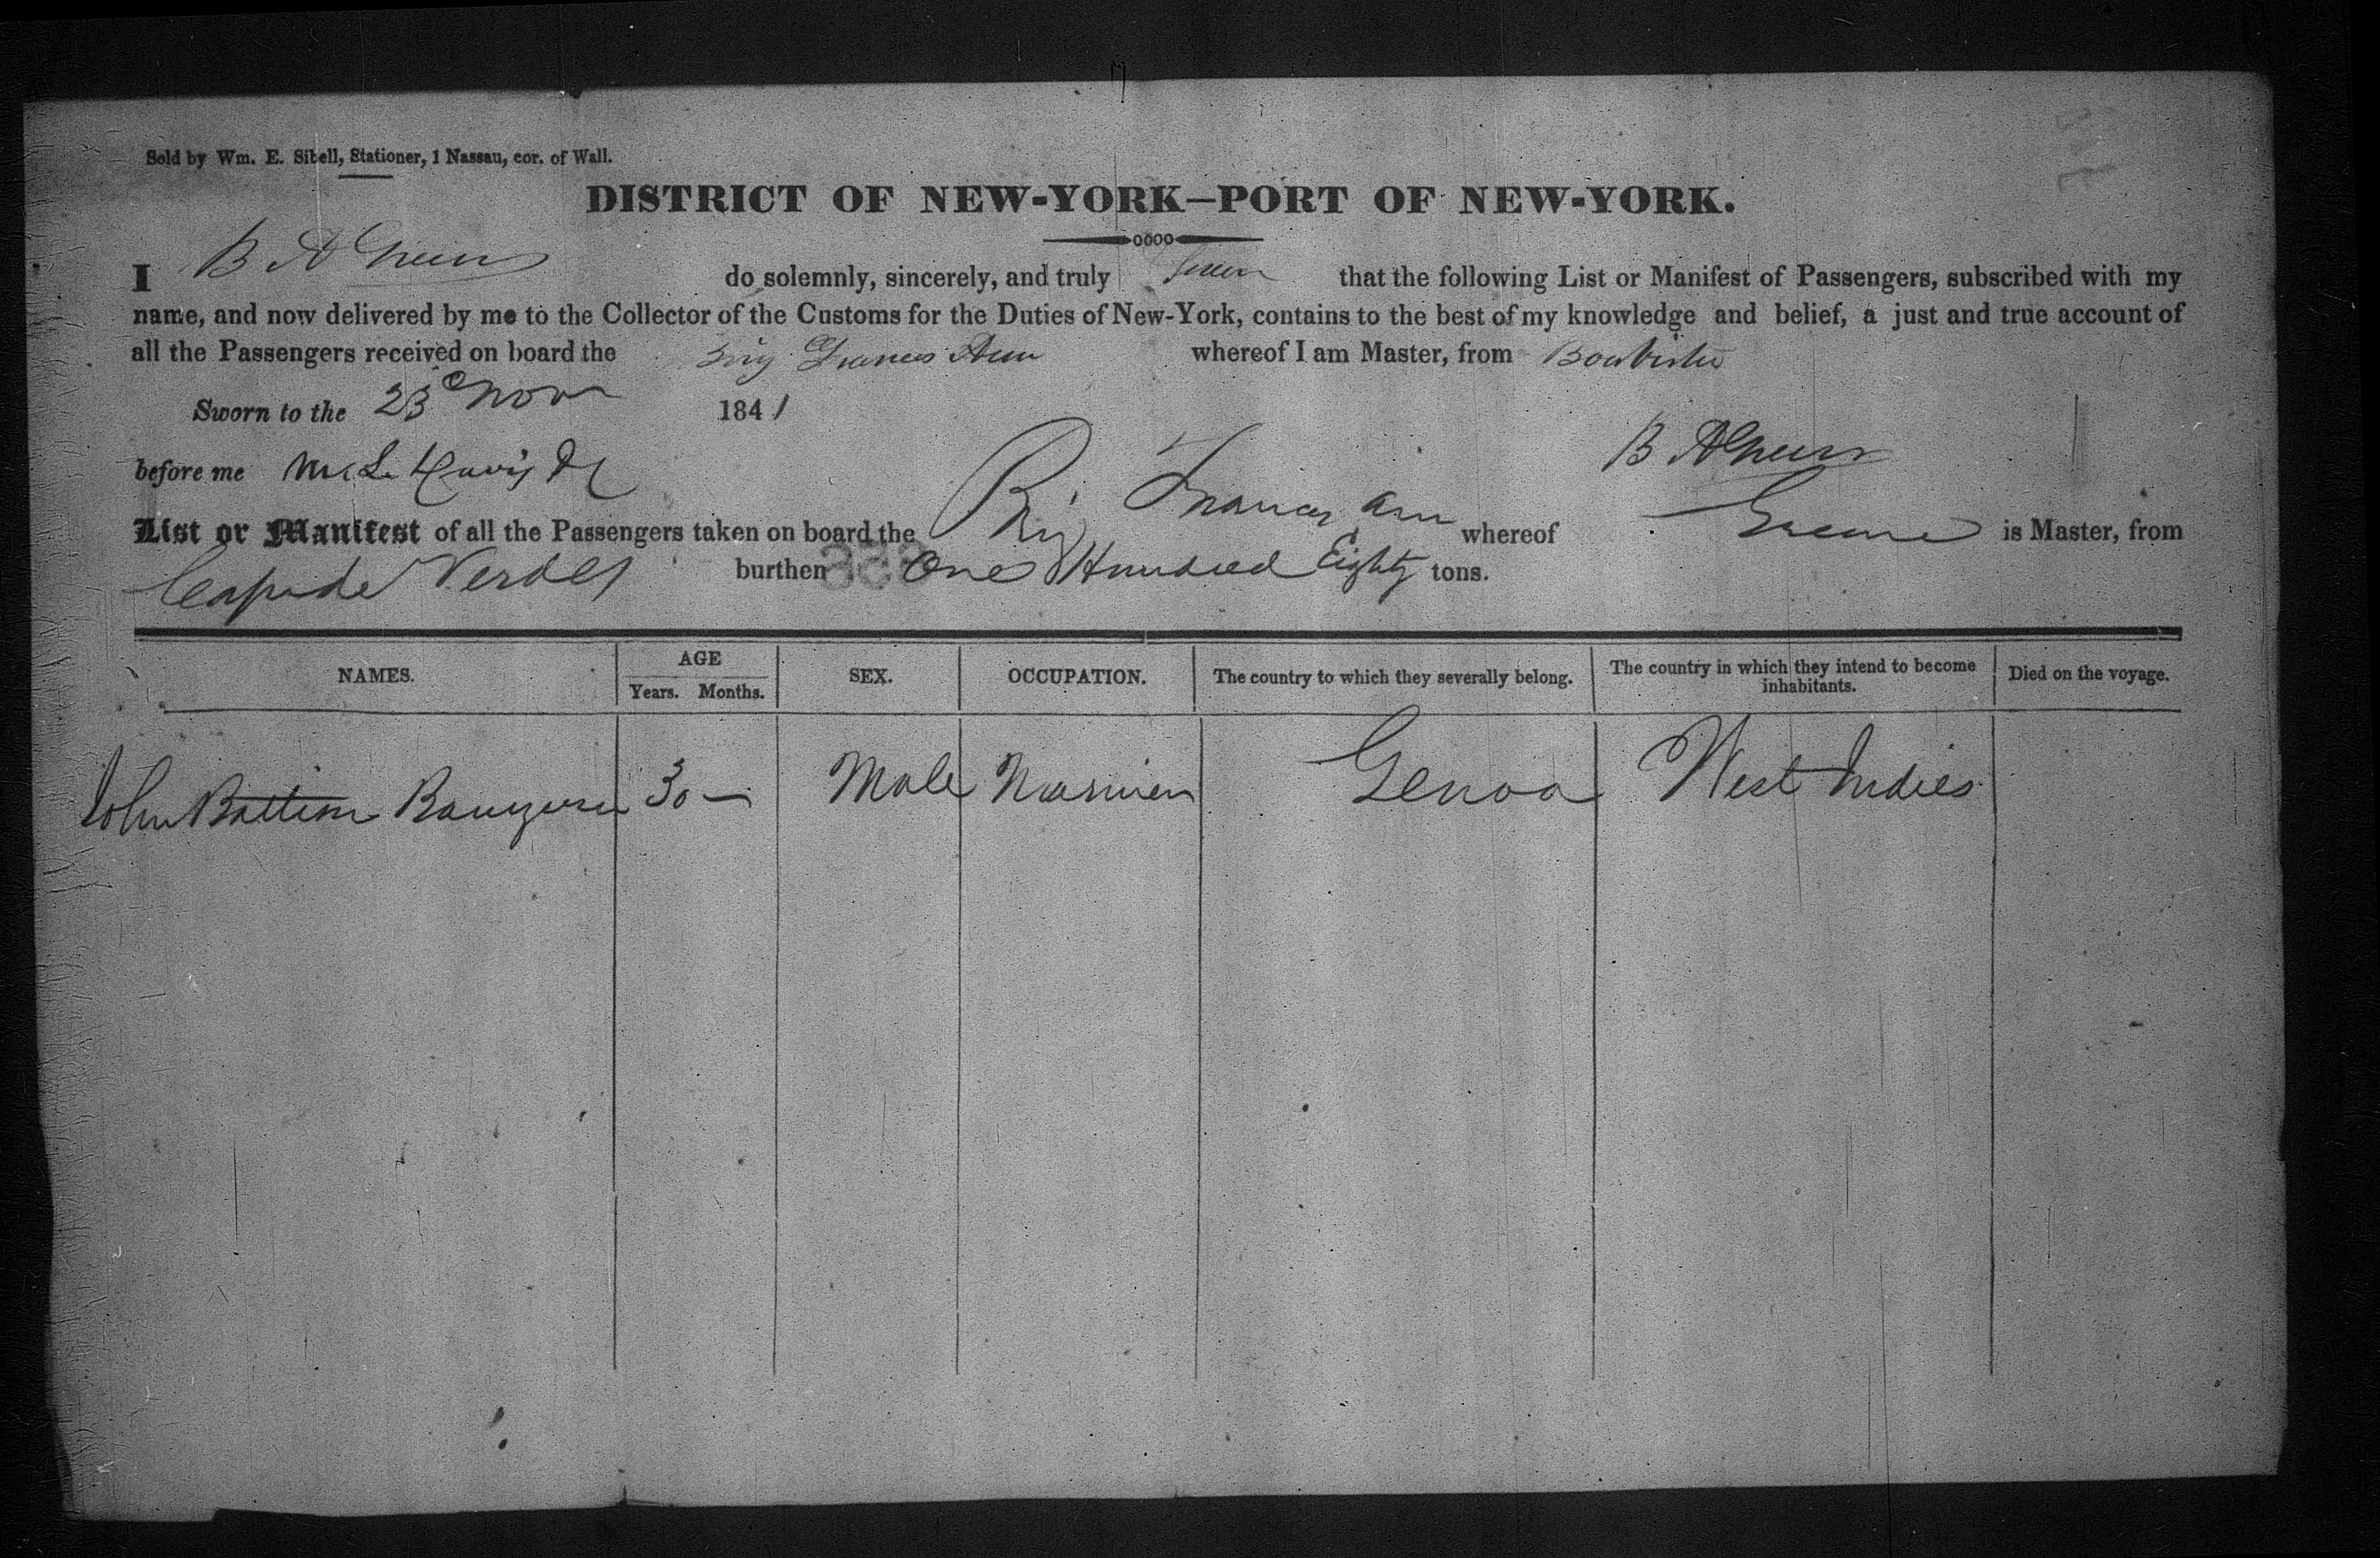 Sold by Wm. E. Sibell, Stationer, 1 Nassau, cor. of Wall.
DISTRICT OF NEW-YORK—PORT OF NEW-YORK.
I B A Green do solemnly, sincerely, and truly swear that the following List or Manifest of Passengers, subscribed with my
name, and now delivered by me to the Collector of the Customs for the Duties of New-York, contains to the best of my knowledge and belief, a just and true account of
all the Passengers received on board the Brig Frances Ann whereof I am Master, from
Sworn to the 23 Nov 1841
B A Green
before me
List or Manifest of all the Passengers taken on board the Brig Frances Ann whereof Greene is Master, from
Cape de Verdes burthen One Hundred Eighty tons.
NAMES. AGE Years. Months. SEX. OCCUPATION. The country to which they severally belong. The country in which they intend to become inhabitants. Died on the voyage.
John 30 — Male Mariner Genoa West Indies